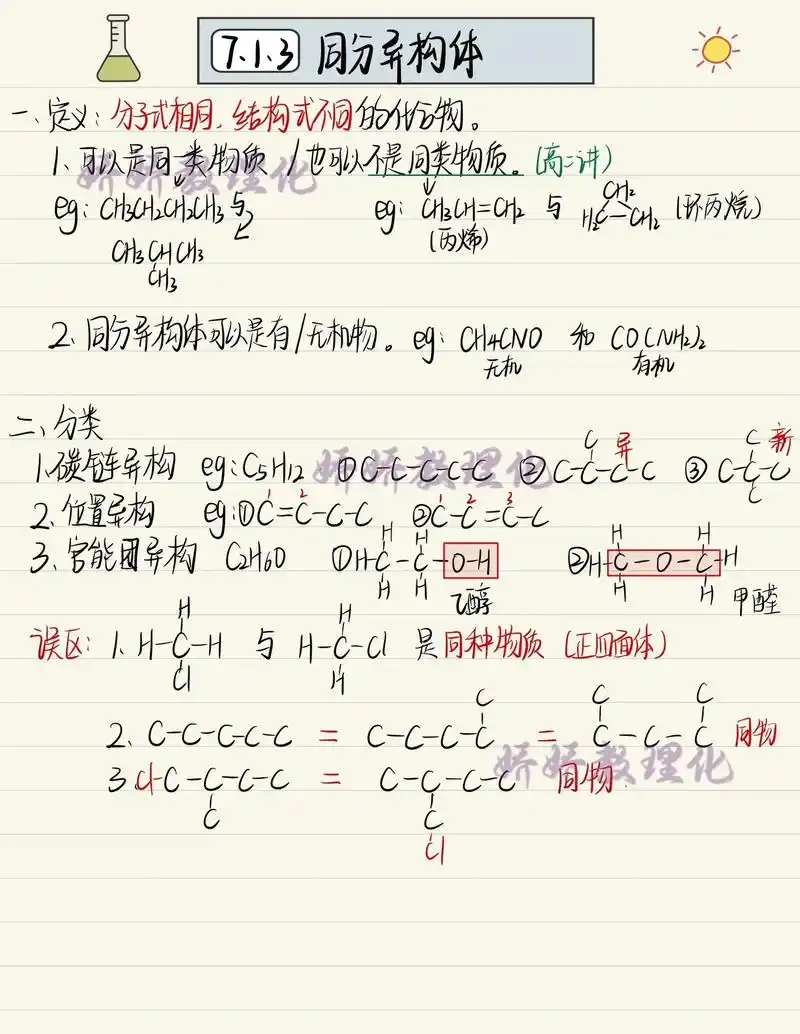 7.1.3 同分异构体
一、定义：分子式相同，结构式不同的化合物。
1、可以是同一类物质 / 也可以不是同类物质。(高二讲)
eg：CH3CH2CH2CH3与 eg：CH3CH=CH2 与 CH2 H2C-CH2 (环丙烷)
CH3CHCH3 (丙烯)
CH3
2、同分异构体可以是有/无机物。eg：CH4CNO 和 CO(NH2)2
无机 有机
二、分类
C 异 C 新
1.碳链异构 eg：C5H12 ①C-C-C-C-C ②C-C-C-C ③C-C-C
C
1 2 1 2 3
2、位置异构 eg：①C=C-C-C ②C-C=C-C
H H H H
3、官能团异构 C2H6O ①H-C-C-O-H ②H-C-O-C-H
H H H H
乙醇 甲醛
H H
误区：1、H-C-H 与 H-C-Cl 是同种物质（正四面体）
Cl H
C C C
2、C-C-C-C-C = C-C-C-C = C-C-C 同物
3.Cl-C-C-C-C = C-C-C-C 同物
C C
Cl
娇娇数理化
娇娇数理化
娇娇数理化